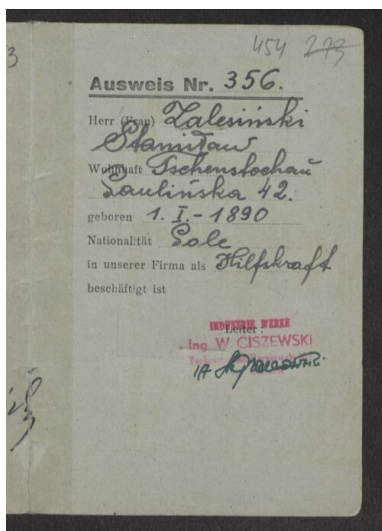 3
454 273
Ausweis Nr. 356.
Herr (Frau) Zalesiński
Stanisław
Wohnhaft Tschenstochau
Paulińska 42.
geboren 1. I. - 1890
Nationalität Pole
in unserer Firma als Hilfskraft
beschäftigt ist
Leiter:
INDUSTRIE WERKE
Ing W. CISZEWSKI